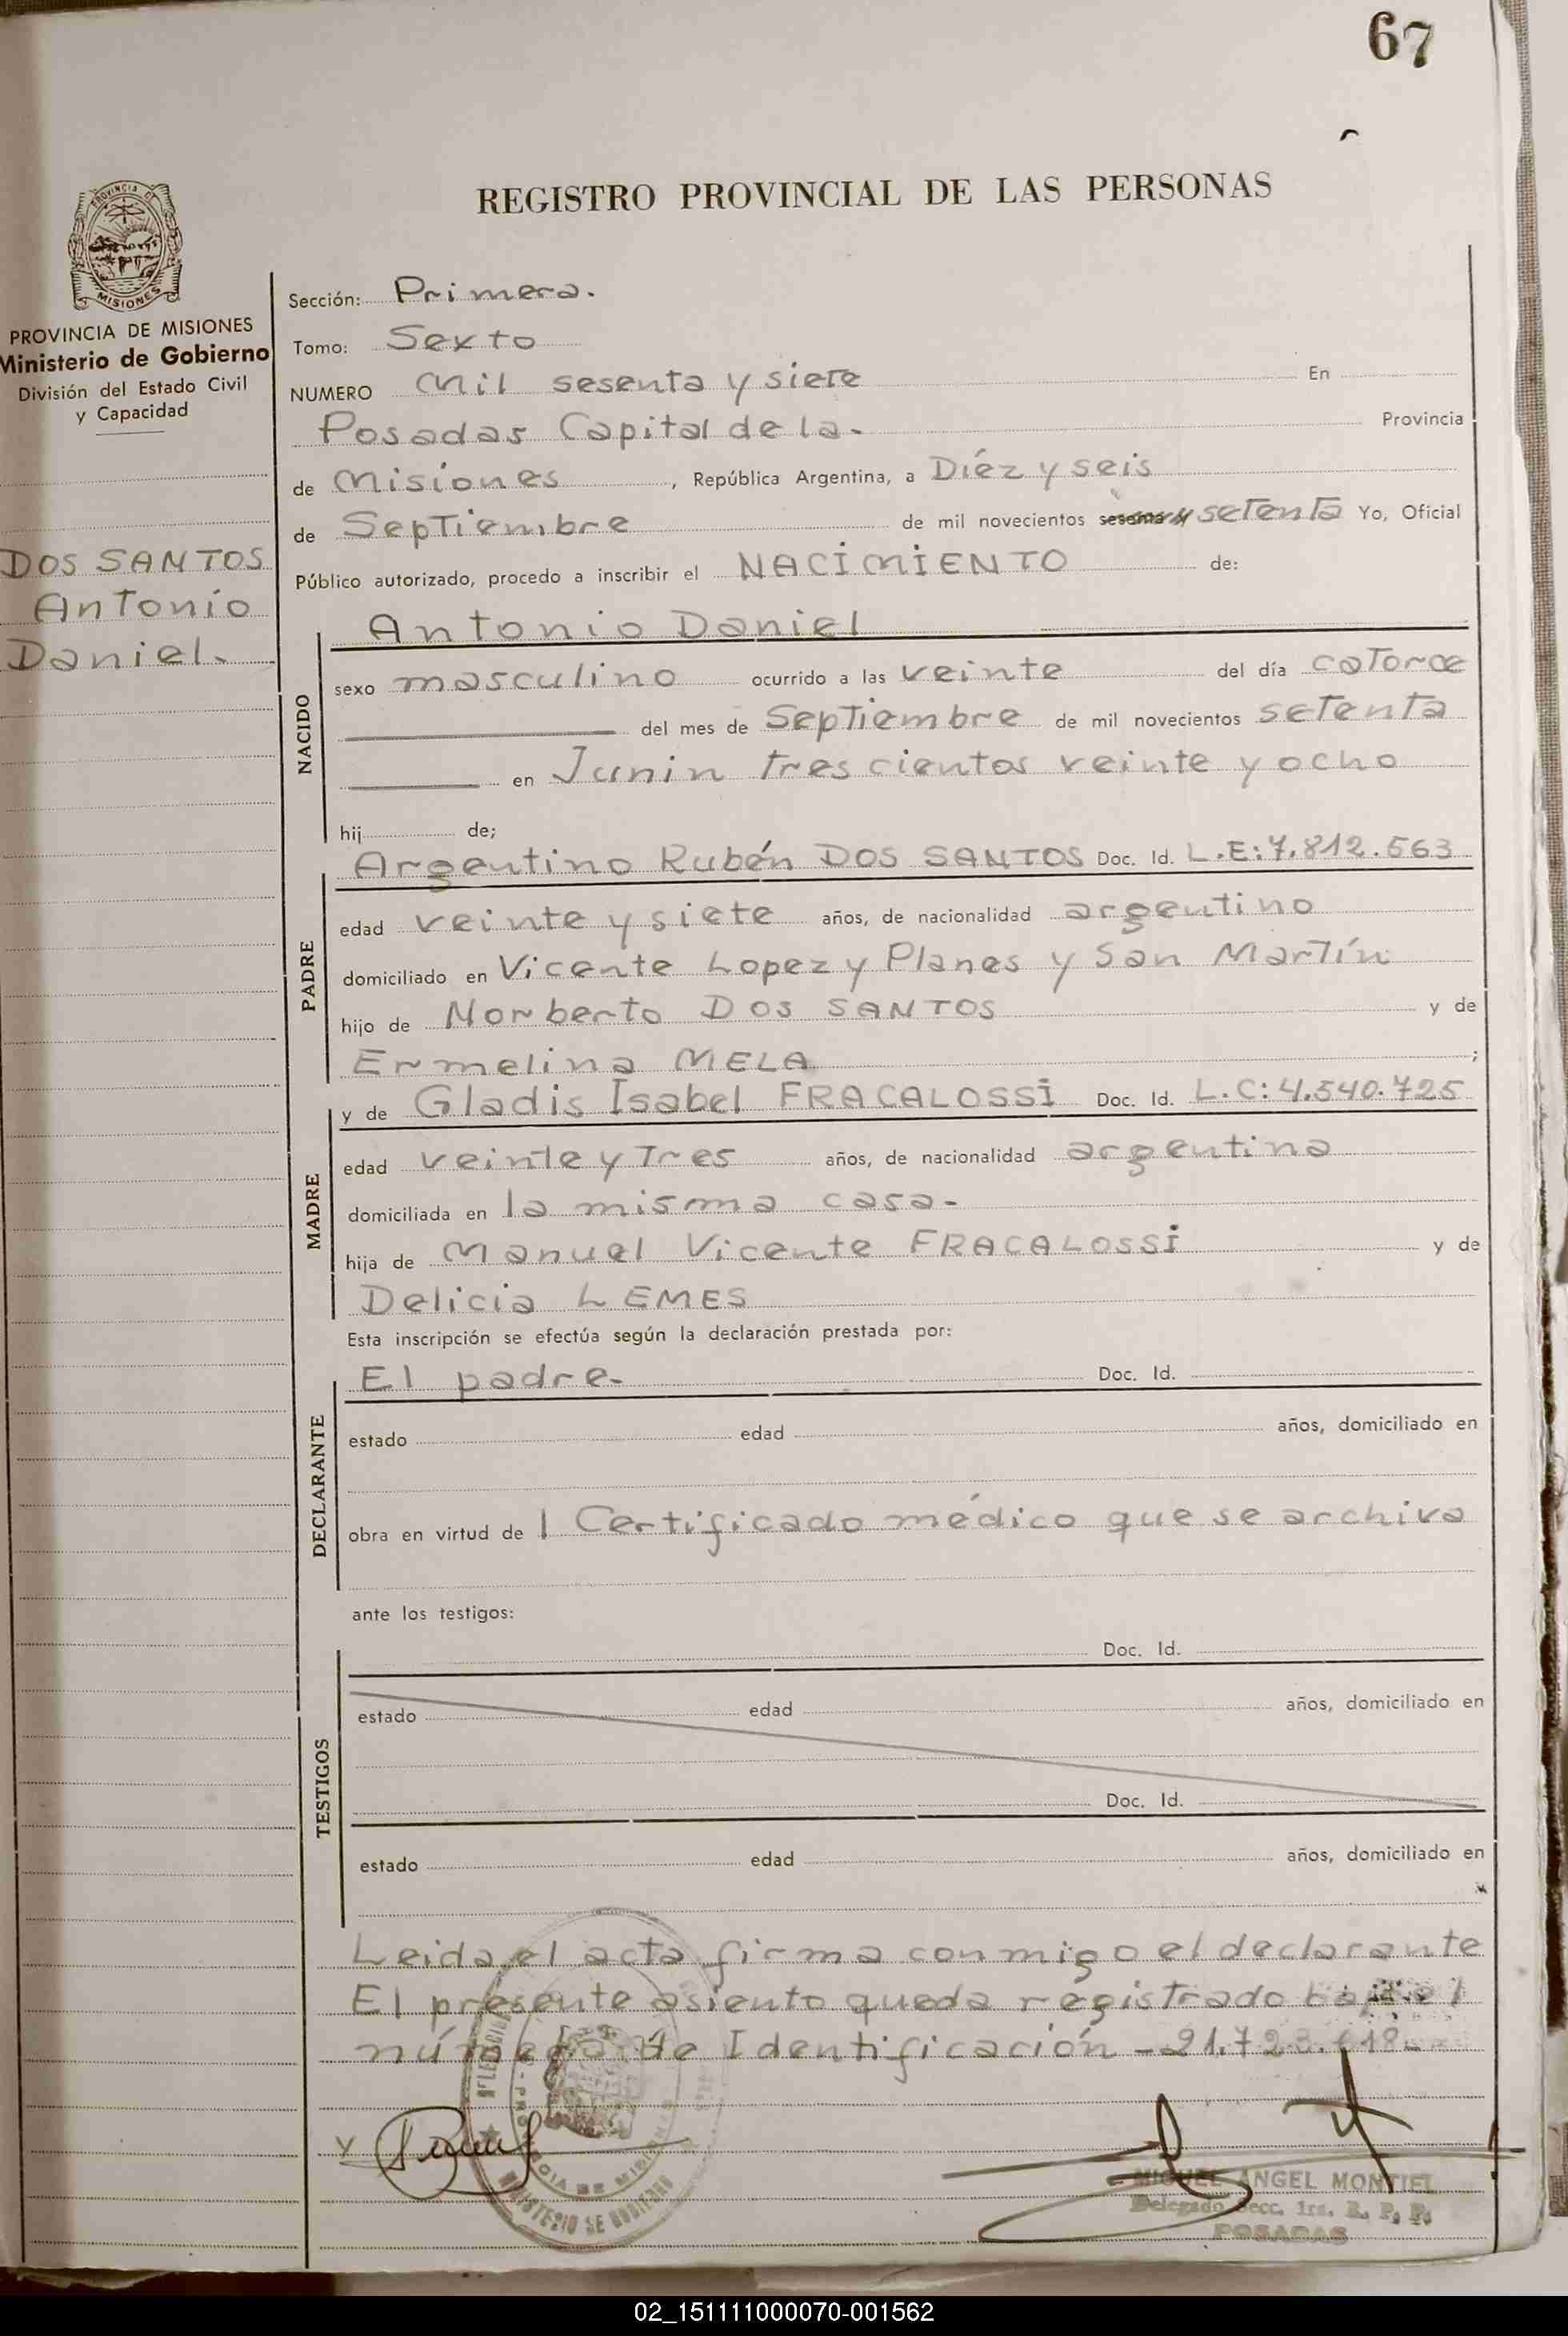 67
REGISTRO PROVINCIAL DE LAS PERSONAS
PROVINCIA DE
MISIONES
PROVINCIA DE MISIONES
Ministerio de Gobierno
División del Estado Civil
y Capacidad
DOS SANTOS
Antonio
Daniel.
Sección: Primera.
Tomo: Sexto
NUMERO Mil sesenta y siete En
Posadas Capital de la. Provincia
de Misiones, República Argentina, a Diéz y seis
de Septiembre de mil novecientos setenta Yo, Oficial
Público autorizado, procedo a inscribir el NACIMIENTO de:
NACIDO
Antonio Daniel
sexo masculino ocurrido a las veinte del día catorce
del mes de Septiembre de mil novecientos setenta
en Junin trescientos veinte y ocho
hij de;
PADRE
Argentino Rubén DOS SANTOS Doc. Id. L.E:7.812.563
edad veinte y siete años, de nacionalidad argentino
domiciliado en Vicente Lopez y Planes y San Martín
hijo de Norberto DOS SANTOS y de
Ermelina MELA ;
MADRE
y de Gladis Isabel FRACALOSSI Doc. Id. L.C:4.540.725
edad veinte y Tres años, de nacionalidad argentina
domiciliada en la misma casa-
hija de Manuel Vicente FRACALOSSI y de
Delicia LEMES
Esta inscripción se efectúa según la declaración prestada por:
DECLARANTE
El padre- Doc. Id.
estado edad años, domiciliado en
obra en virtud de 1 Certificado médico que se archiva
ante los testigos:
TESTIGOS
Doc. Id.
estado edad años, domiciliado en
Doc. Id.
estado edad años, domiciliado en
Leida el acta firma conmigo el declarante
El presente asiento queda registrado bajo el
número de Identificación -21.723.618-
MIGUEL ANGEL MONTIEL
Delegado Secc. 1ra. R. P. P.
POSADAS
02_151111000070-001562